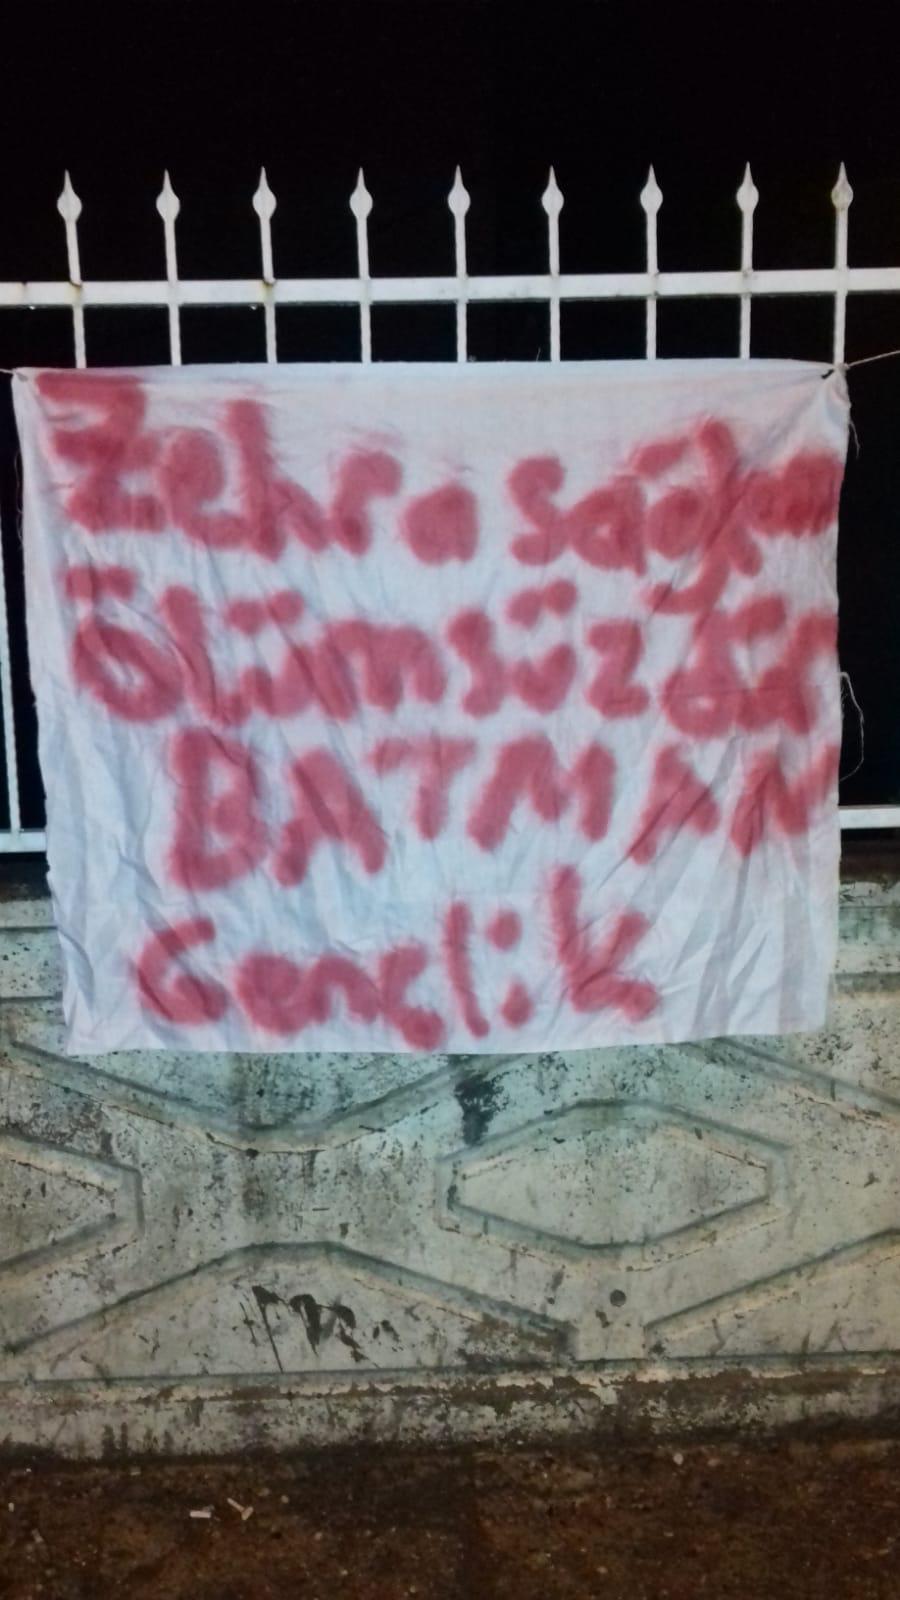 Zehra sağkan
ölümsüzdür
BATMAN
Gençlik